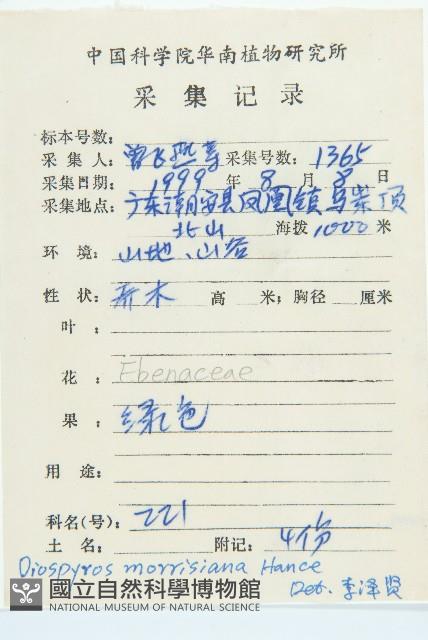 中国科学院华南植物研究所
采集记录
标本号数:
采集人: 曾飞燕等 采集号数: 1365
采集日期: 1999 年 8 月 8 日
采集地点: 广东潮安县凤凰镇乌岽顶
北山 海拨 1000 米
环境: 山地、山谷
性状: 乔木 高 米; 胸径 厘米
叶:
花: Ebenaceae
果: 绿色
用途:
科名(号): 221
土名: 附记: 4份
Diospyros morrisiana Hance
Det. 李泽贤
國立自然科學博物館
NATIONAL MUSEUM OF NATURAL SCIENCE